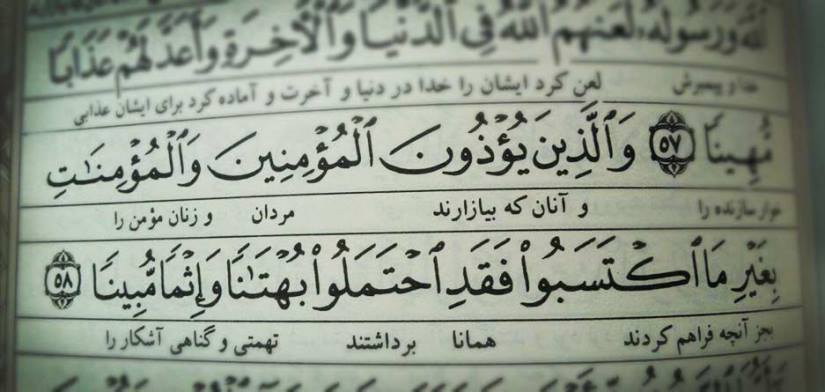 ٱللَّهَ وَرَسُولَهُۥ لَعَنَهُمُ ٱللَّهُ فِى ٱلدُّنْيَا وَٱلْأَخِرَةِ وَأَعَدَّ لَهُمْ عَذَابًا
خدا و پیمبرش لعن کرد ایشان را خدا در دنیا و آخرت و آماده کرد برای ایشان عذابی
مُّهِينًا ۵۷ وَٱلَّذِينَ يُؤْذُونَ ٱلْمُؤْمِنِينَ وَٱلْمُؤْمِنَٰتِ
خوار سازنده را و آنان که بیازارند مردان و زنان مؤمن را
بِغَيْرِ مَا ٱكْتَسَبُوا۟ فَقَدِ ٱحْتَمَلُوا۟ بُهْتَٰنًا وَإِثْمًا مُّبِينًا ۵۸
بجز آنچه فراهم کردند همانا برداشتند تهمتی و گناهی آشکار را